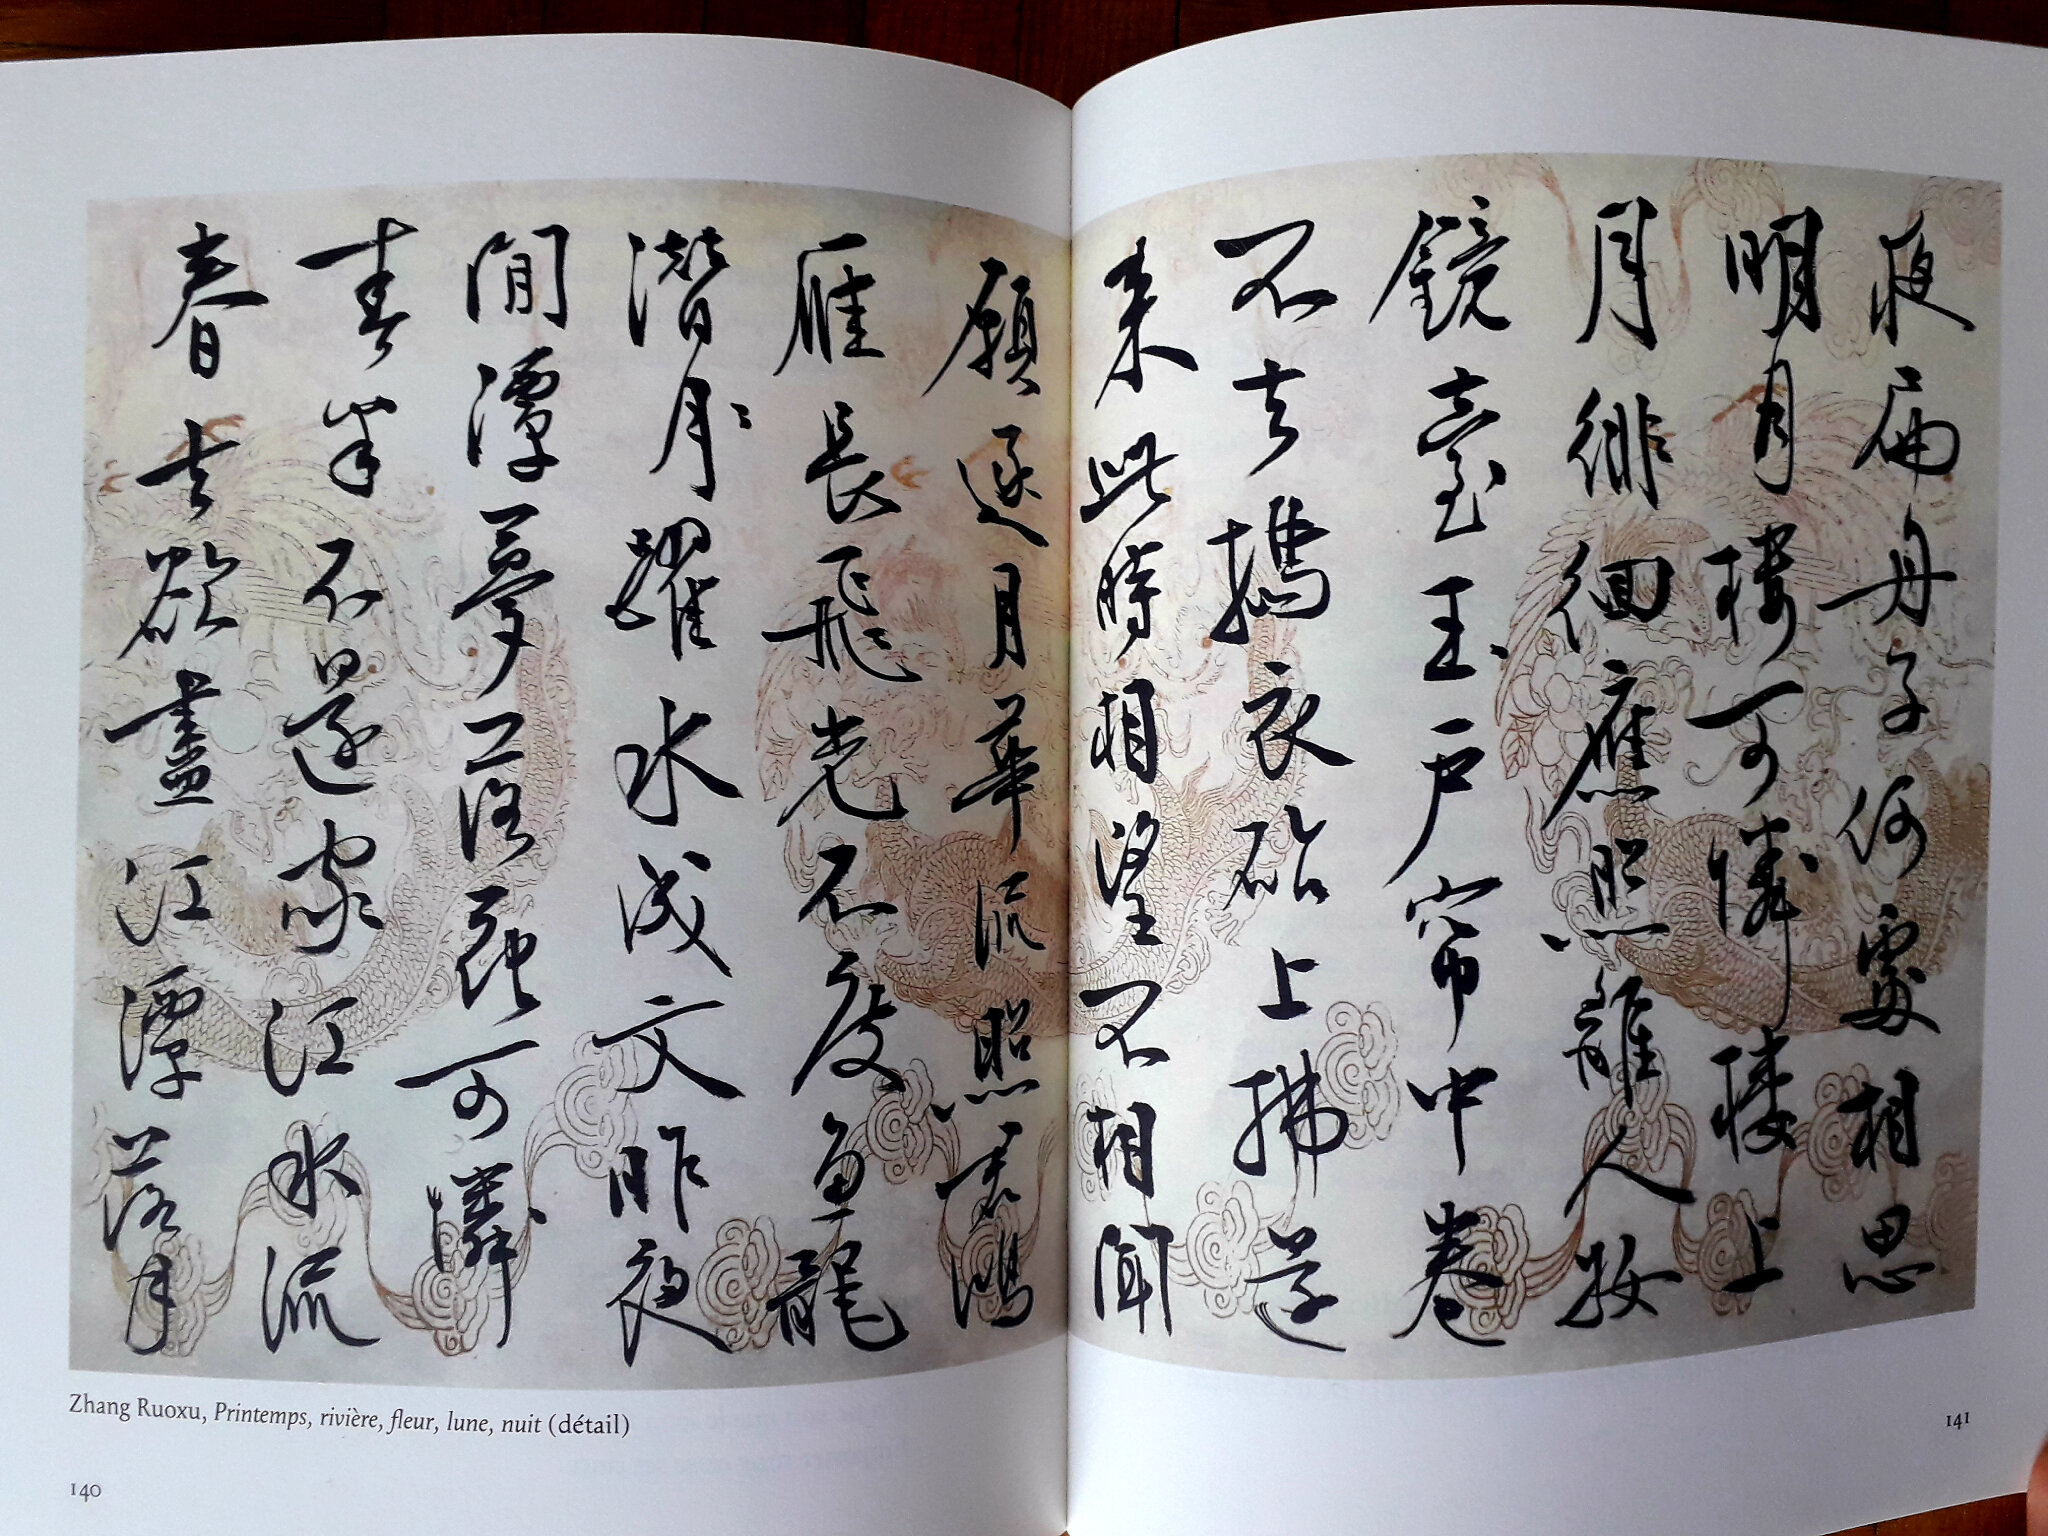 夜扁舟子何處相思
明月樓可憐樓上
月徘徊應照離人妝
鏡臺玉戶帘中卷
不去搗衣砧上拂還
來此時相望不相聞
願逐月華流照君鴻
雁長飛光不度魚龍
潛月躍水成文昨夜
閒潭夢落花可憐
春半不還家江水流
春去欲盡江潭落月
Zhang Ruoxu, Printemps, rivière, fleur, lune, nuit (détail)
140
141